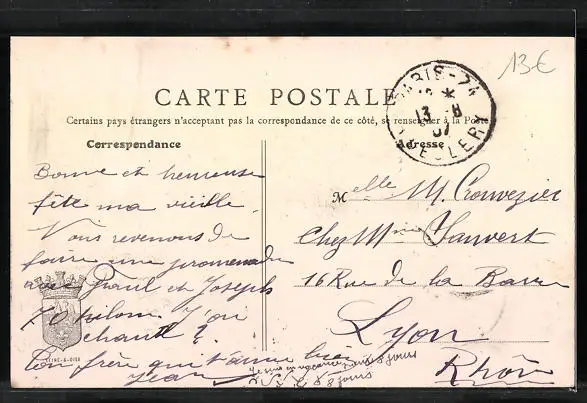 13€
PARIS - 24
13 - 8
07
R. DE CLERY
CARTE POSTALE
Certains pays étrangers n'acceptent pas la correspondance de ce côté, se renseigner à la Poste
Correspondance
Adresse
Bonne et heureuse
fête ma vieille.
Nous revenons de
faire une promenade
avec Paul et Joseph
chaud ?
Ton frère qui t'aime bien
Jean
Je suis en vacances 8 jours
8 jours
SEINE-&-OISE
Melle M. Crouvezier
Chez Mme Vauvert
16 Rue de la Barre
Lyon
Rhône